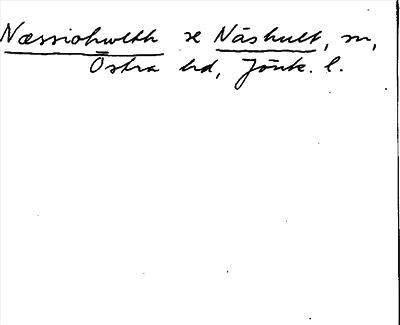 Næssiohwlth se Näshult, sn,
Östra hd, Jönk. l.